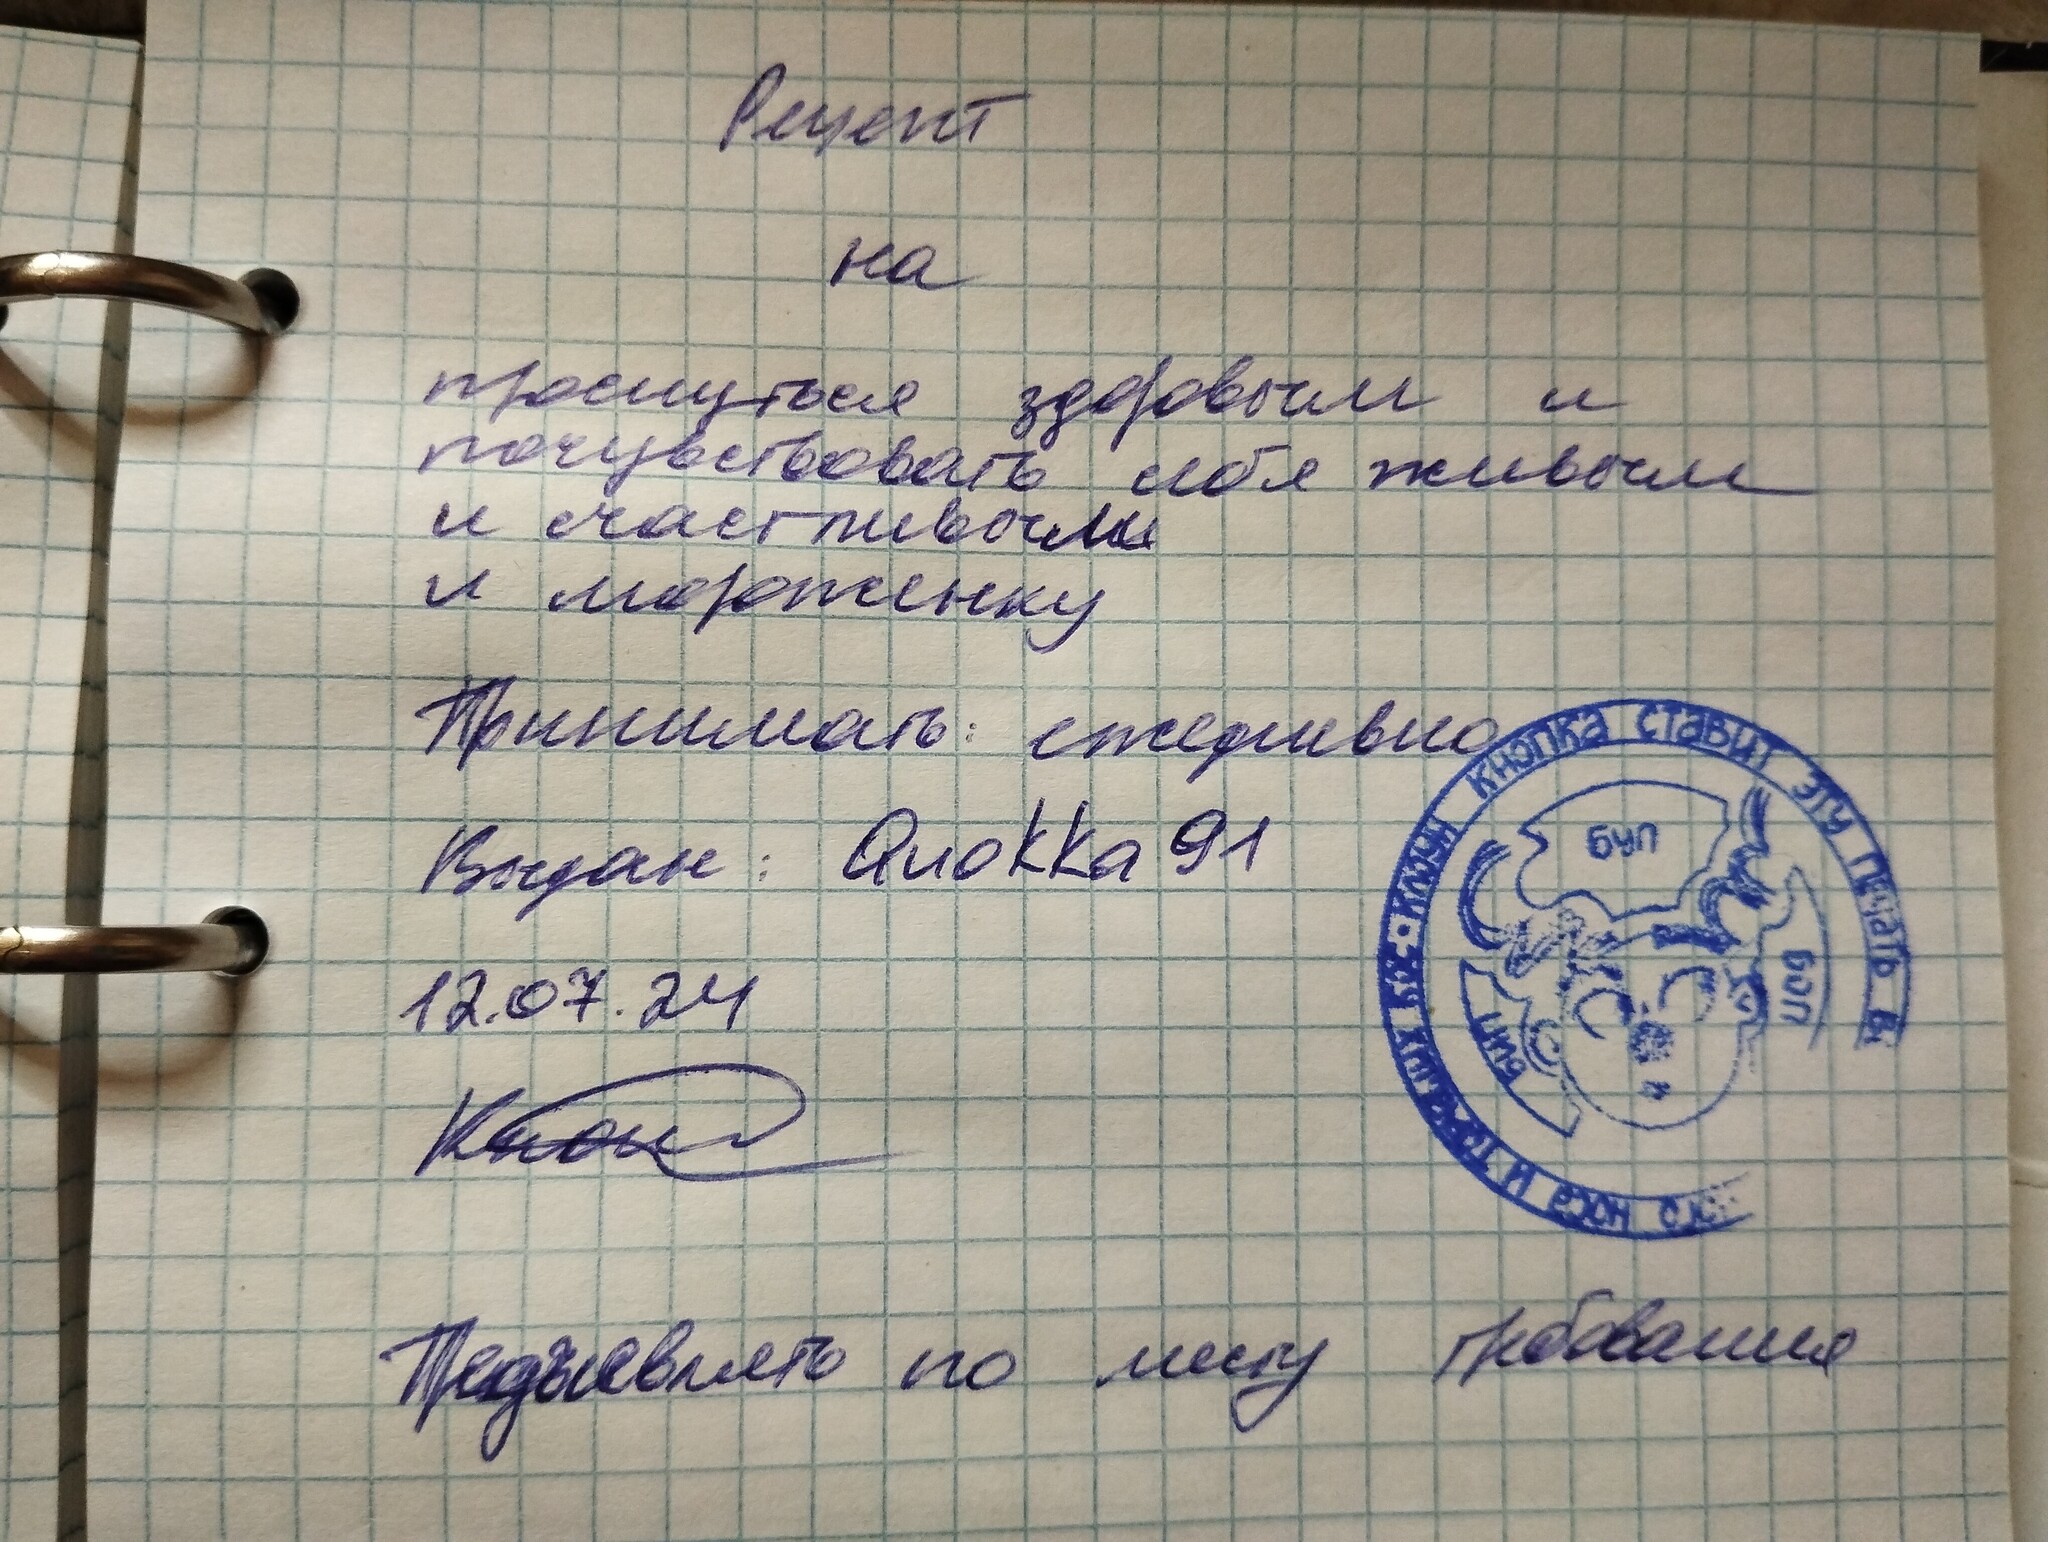 Рецепт
на
проснуться здоровым и
почувствовать себя живым
и счастливым
и мороженку
Принимать: ежедневно
Выдан: Quokka91
12.07.24
Предъявлять по месту требования
КЛОУН КНОПКА СТАВИТ ЭТУ ПЕЧАТЬ В
НОСА И
БУП
БОП
БИП